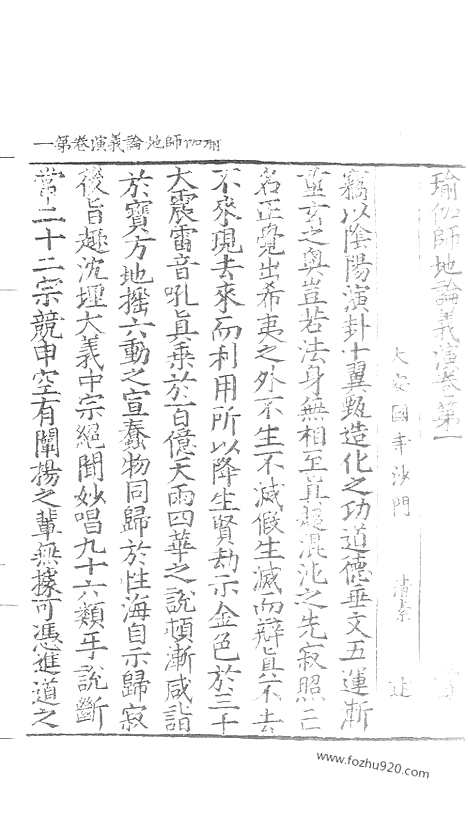 瑜伽師地論義演卷第一
大安國寺沙門 清素 述
竊以陰陽演卦十翼甄造化之功道德垂文五運斬
重玄之奧豈若法身無相至真超混沌之先寂照
名正覺出希夷之外不生不滅假生滅而辯真不去
不來現去來而利用所以降生賢劫示金色於三千
大震雷音吼真乘於百億天雨四華之說頓漸咸詣
於寶方地搖六動之宣蠢物同歸於性海自示歸寂
後旨趣沈堙大義中宗絕聞妙唱九十六類乎說斷
常二十二宗競申空有闡揚之輩無據可憑進道之
瑜伽師地論義演卷第一
www.fozhu920.com